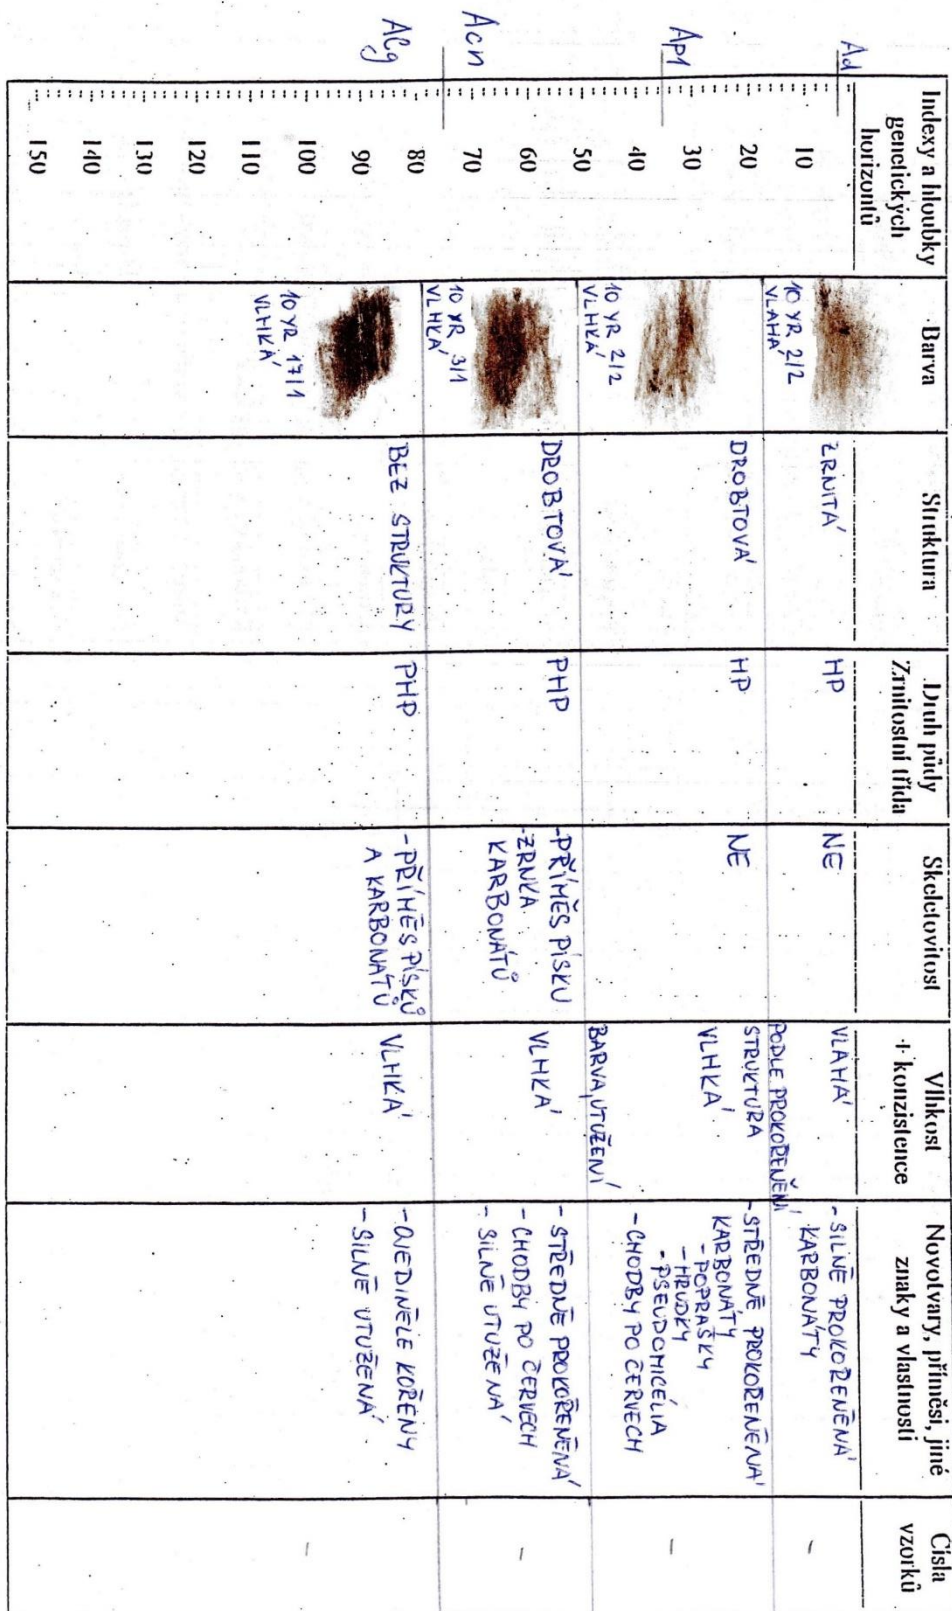 Indexy a hloubky
genetických
horizontů
Barva
Struktura
Druh půdy
Zrnitostní třída
Skeletovitost
Vlhkost
+ konzistence
Novotvary, příměsi, jiné
znaky a vlastnosti
Čísla
vzorků
Ad
10
10 YR 2/2
VLAHÁ
ZRNITÁ
HP
NE
VLAHÁ
PODLE PROKOŘENĚNÍ,
- SILNĚ PROKOŘENĚNÁ
KARBONÁTY
-
Ap1
20
30
10 YR 2/2
VLHKÁ
DROBTOVÁ
HP
NE
STRUKTURA
VLHKÁ
BARVA, UTUŽENÍ
- STŘEDNĚ PROKOŘENĚNÁ
KARBONÁTY
- POPRAŠKY
- HRUDKY
- PSEUDOMICÉLIA
- CHODBY PO ČERVECH
-
Acn
40
50
60
70
10 YR 3/1
VLHKÁ
DROBTOVÁ
PHP
- PŘÍMĚS PÍSKU
- ZRNKA
KARBONÁTŮ
VLHKÁ
- STŘEDNĚ PROKOŘENĚNÁ
- CHODBY PO ČERVECH
- SILNĚ UTUŽENÁ
-
ACg
80
90
100
110
120
130
140
150
10 YR 17/1
VLHKÁ
BEZ STRUKTURY
PHP
- PŘÍMĚS PÍSKŮ
A KARBONÁTŮ
VLHKÁ
- OJEDINĚLE KOŘENY
- SILNĚ UTUŽENÁ
-